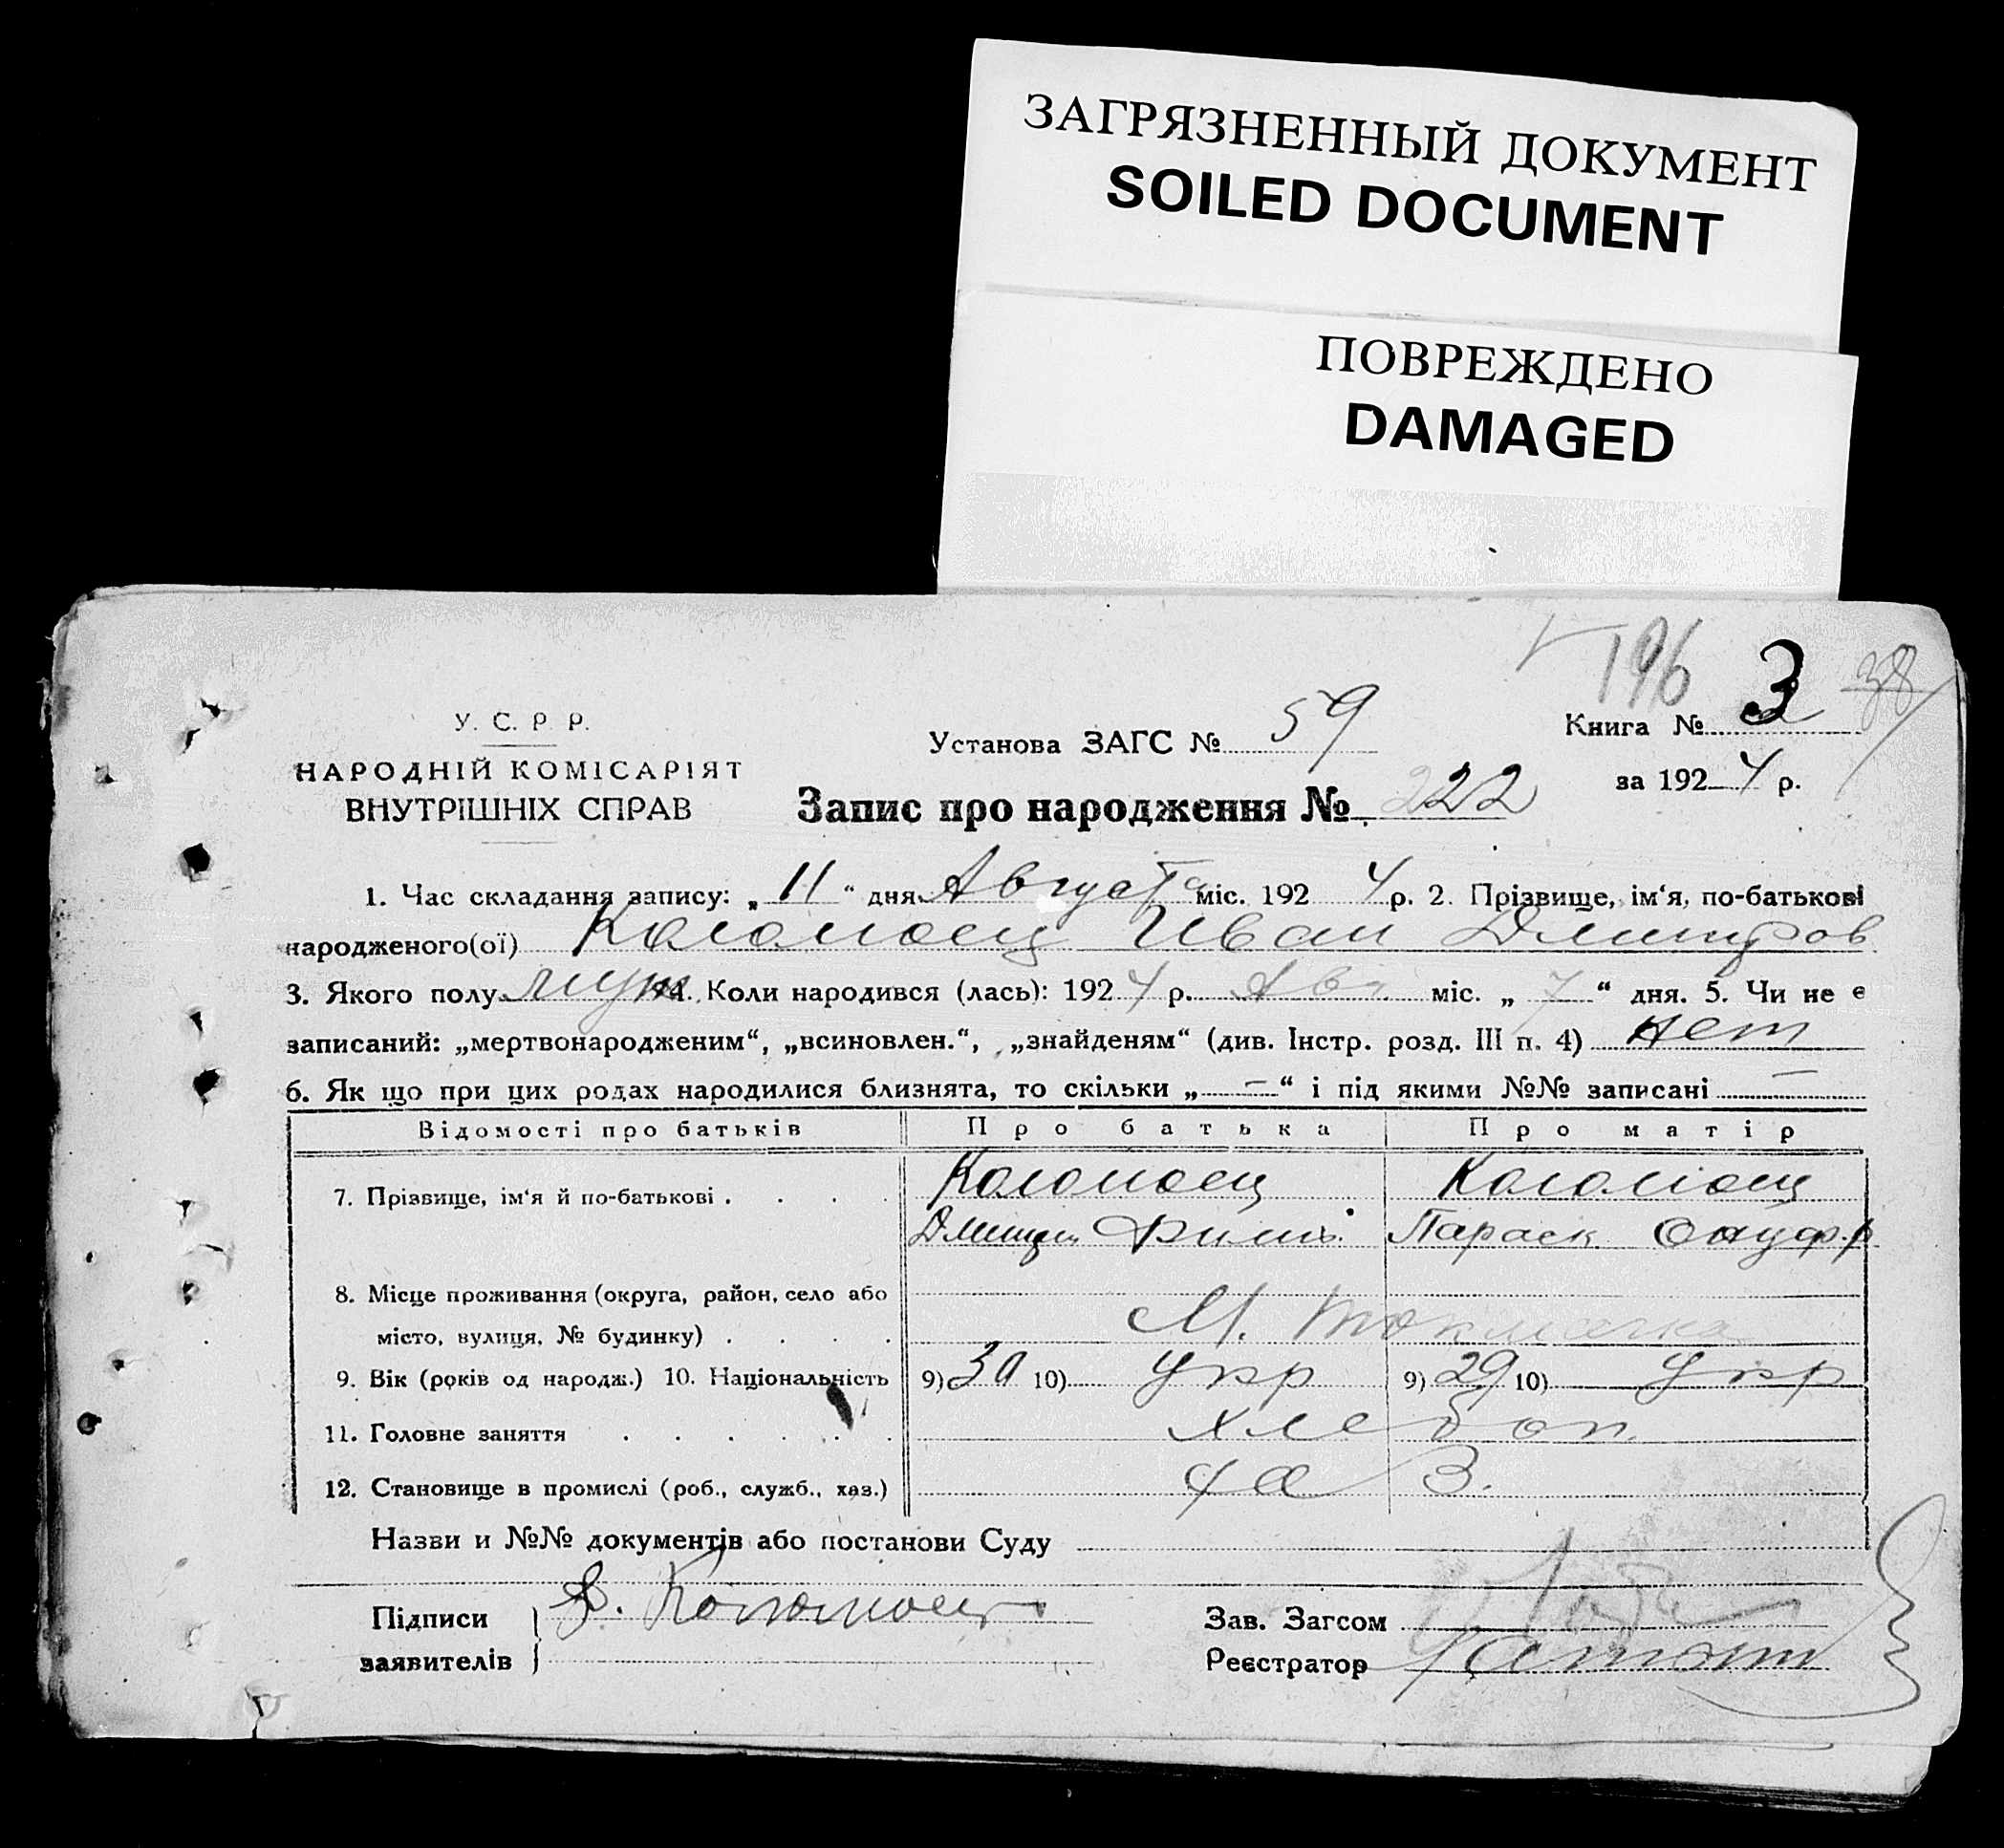 ЗАГРЯЗНЕННЫЙ ДОКУМЕНТ
SOILED DOCUMENT
ПОВРЕЖДЕНО
DAMAGED
196 3 38
У. С. Р. Р.
Установа ЗАГС № 59
Книга №
НАРОДНІЙ КОМІСАРІЯТ
ВНУТРІШНІХ СПРАВ
за 1924 р.
Запис про народження № 222
1. Час складання запису: „ 11 “ дня Августа міс. 1924 р. 2. Прізвище, ім‘я, по-батькові
народженого(ої) Коломоец Иван Дмитров
3. Якого полу муж 4. Коли народився (лась): 1924 р. Авг міс. „ 7 “ дня. 5. Чи не є
записаний: „мертвонародженим“, „всиновлен.“, „знайденям“ (див. Інстр. розд. III п. 4) нет
6. Як що при цих родах народилися близнята, то скільки „ — “ і під якими №№ записані —
Відомості про батьків Про батька Про матір
7. Прізвище, ім‘я й по-батькові . . . . Коломоец Коломоец
Дмитри Филип. Параск Онуфр.
8. Місце проживання (округа, район, село або
місто, вулиця, № будинку) . . . . М. Токмачка
9. Вік (років од народж.) 10. Національність 9) 30 10) Укр 9) 29 10) Укр
11. Головне заняття . . . . . . хлебоп
12. Становище в промислі (роб., служб., хаз.) хаз.
Назви и №№ документів або постанови Суду
Підписи Д. Коломоец
заявителів
Зав. Загсом
Реєстратор